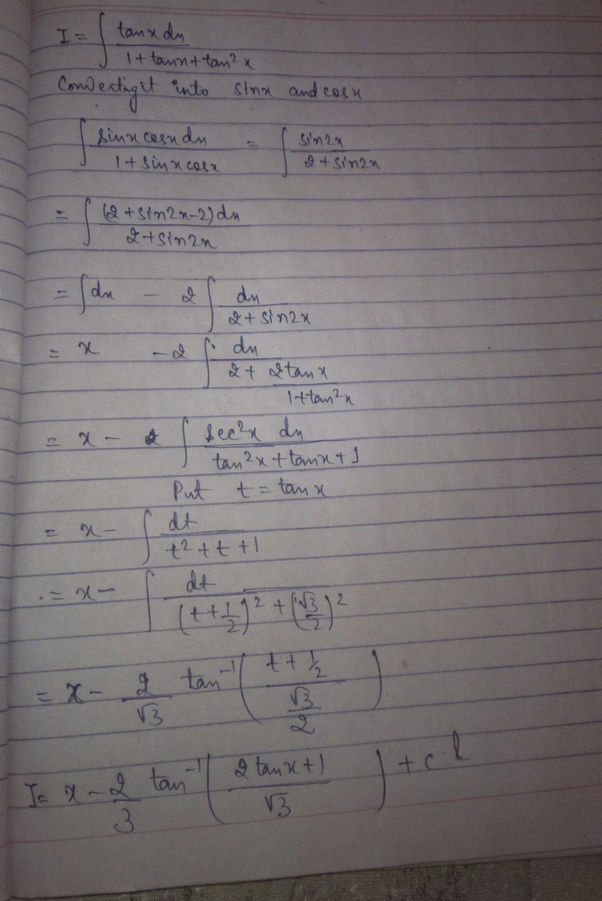 I = ∫ tanx dx / 1 + tanx + tan²x
Converting it into sinx and cosx
∫ sinx cosx dx / 1 + sinx cosx = ∫ sin2x / 2 + sin2x
= ∫ (2 + sin2x - 2) dx / 2 + sin2x
= ∫ dx - 2 ∫ dx / 2 + sin2x
= x - 2 ∫ dx / 2 + 2tanx / 1 + tan²x
= x - ∫ sec²x dx / tan²x + tanx + 1
Put t = tanx
= x - ∫ dt / t² + t + 1
= x - ∫ dt / (t + 1/2)² + (√3/2)²
= x - 2/√3 tan⁻¹ ( t + 1/2 / √3/2 )
I = x - 2/3 tan⁻¹ ( 2tanx + 1 / √3 ) + c